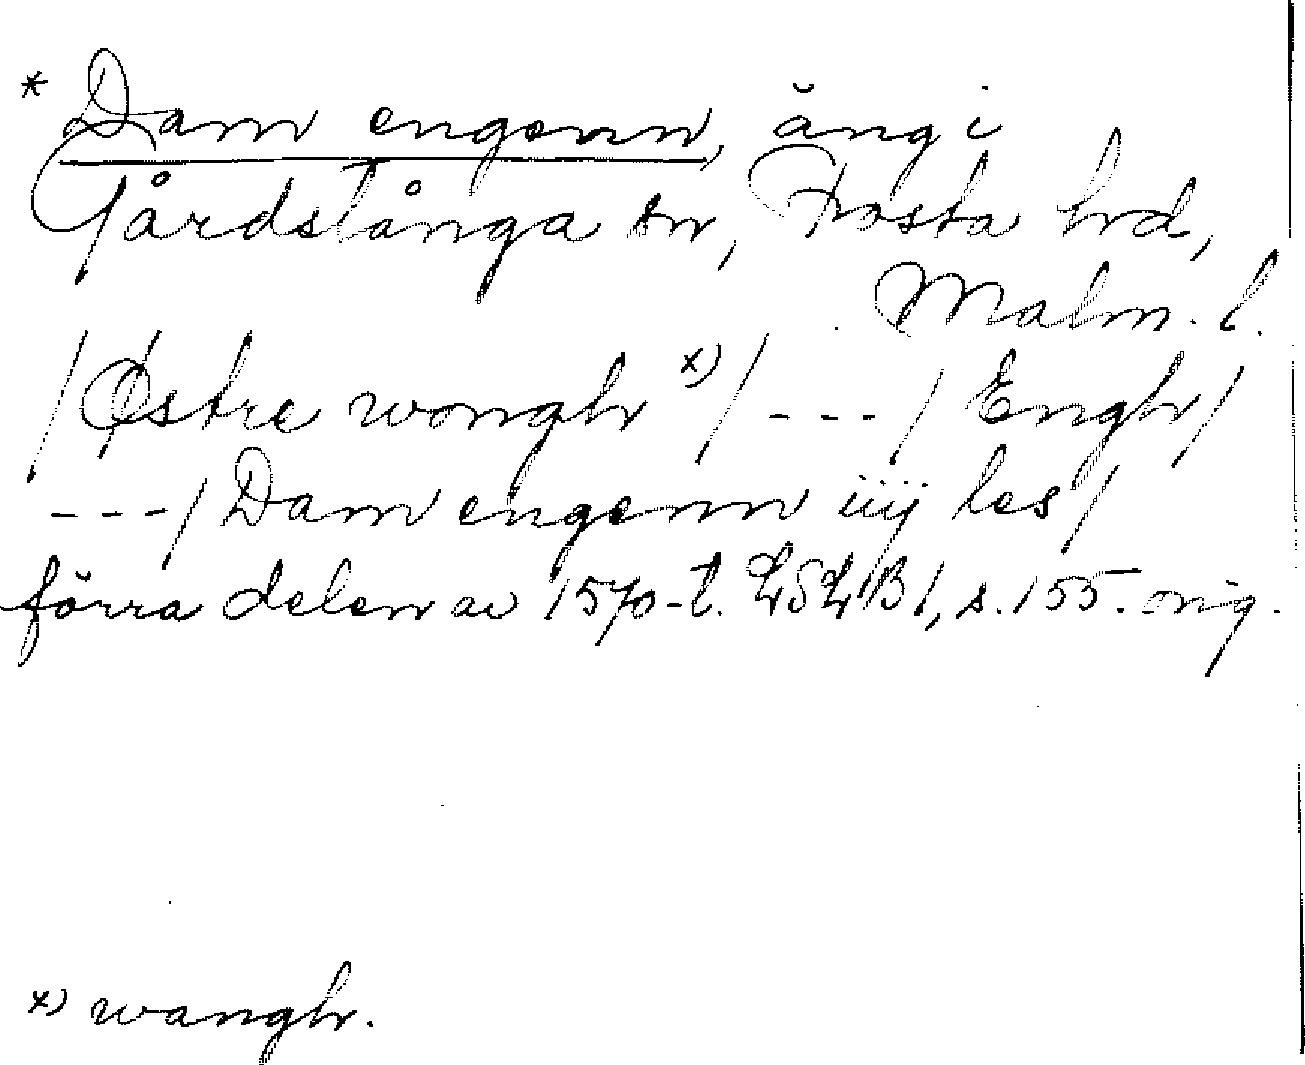 * Dam engenn, äng i
Gårdstånga sn, Frosta hd,
Malm. l.
/Østre wongh x)/ --- / Engh/
---/ Dam engenn iiij les/
förra delen av 1570-t. LSLB 1, s. 155. orig.
x) wangh.